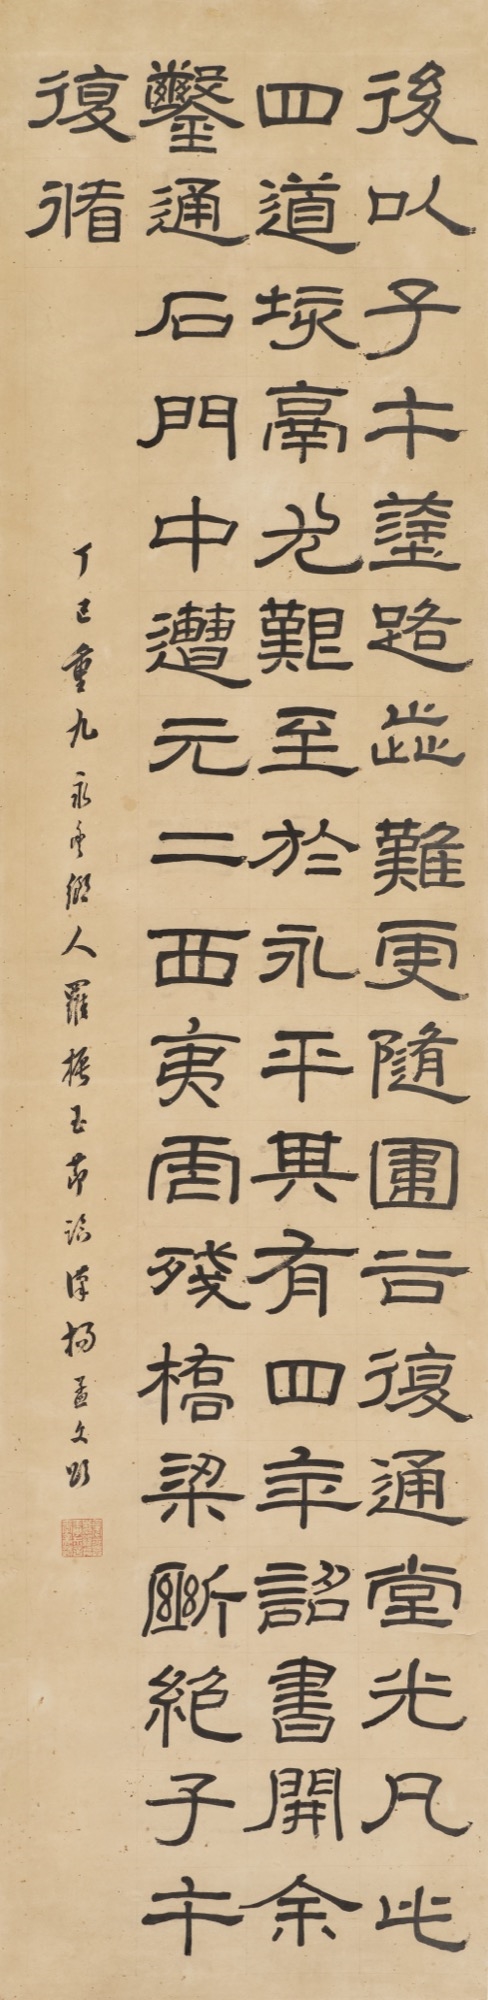 後以子午塗路歰難更隨圍谷復通堂光凡此
四道垓鬲尤艱至於永平其有四年詔書開余
鑿通石門中遭元二西夷虐殘橋梁斷絕子午
復循
丁巳重九永豐鄉人羅振玉節臨漢楊孟文頌